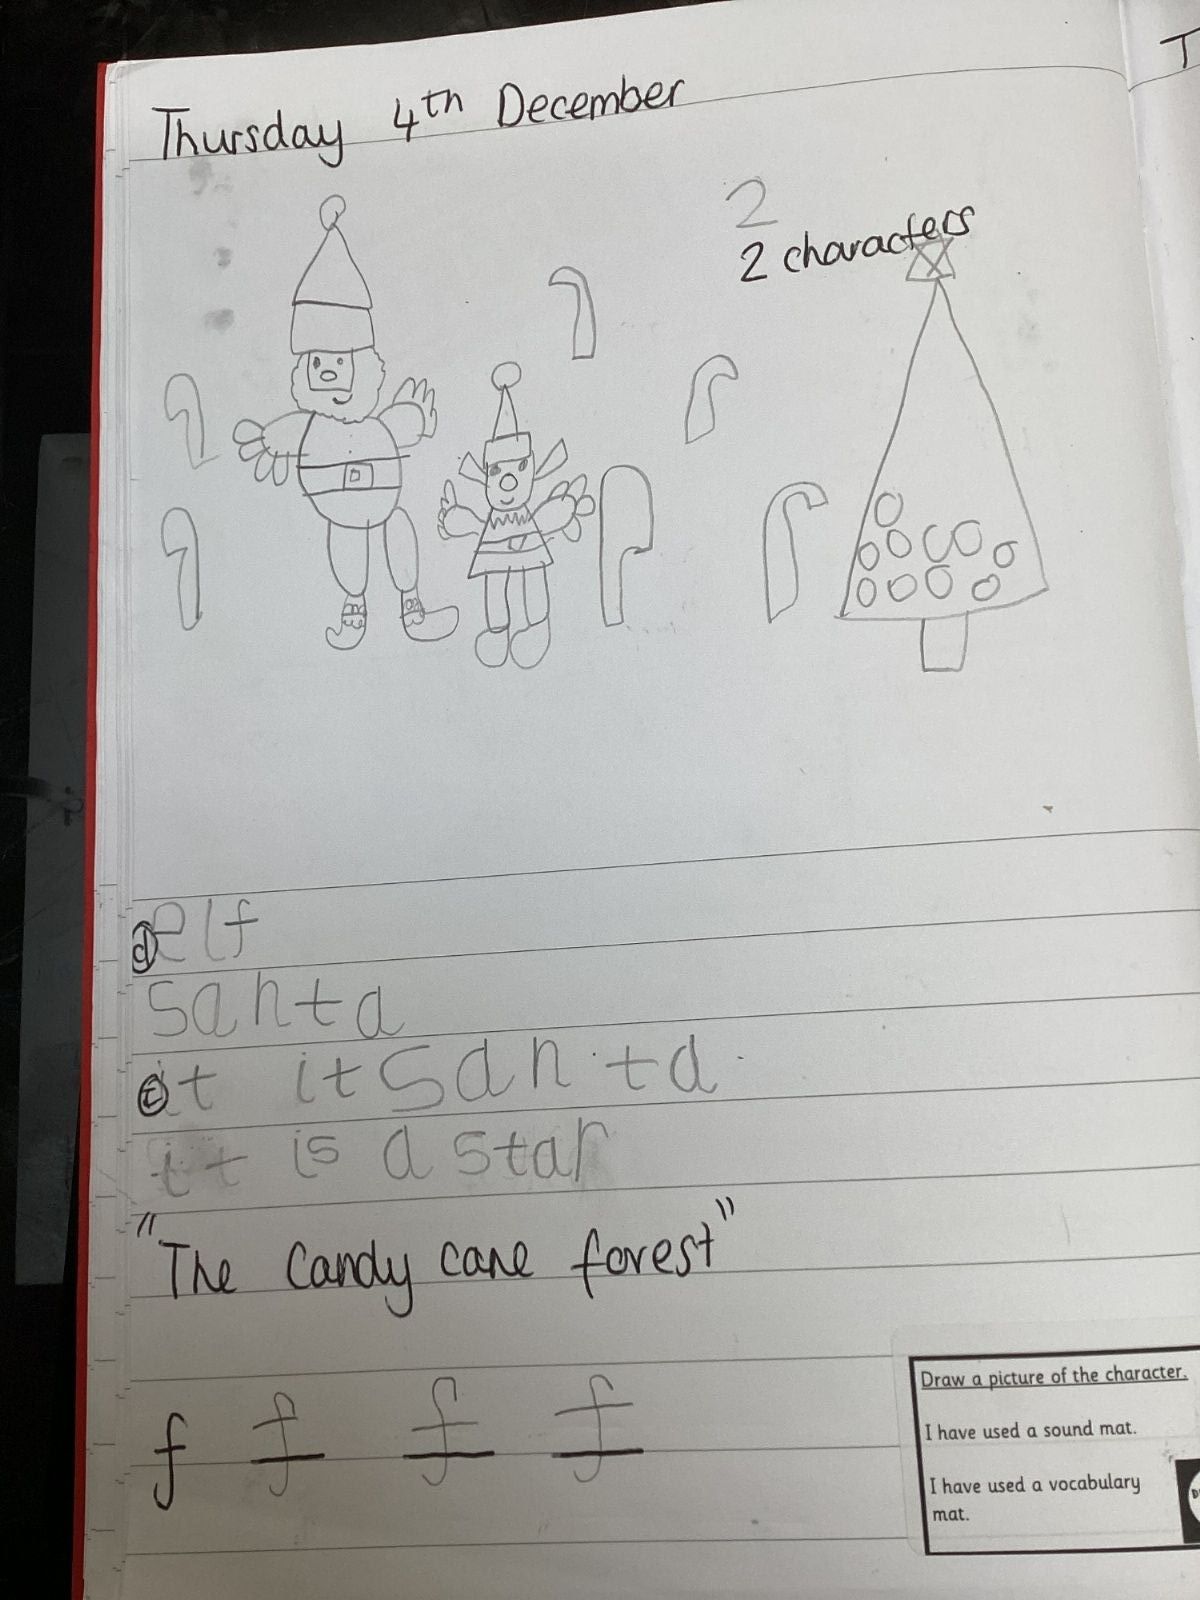 T
Thursday 4th December
2
2 characters
d elf
santa
t it it santa.
it is a star
"The candy cane forest"
f f f f
Draw a picture of the character.
I have used a sound mat.
I have used a vocabulary
mat.